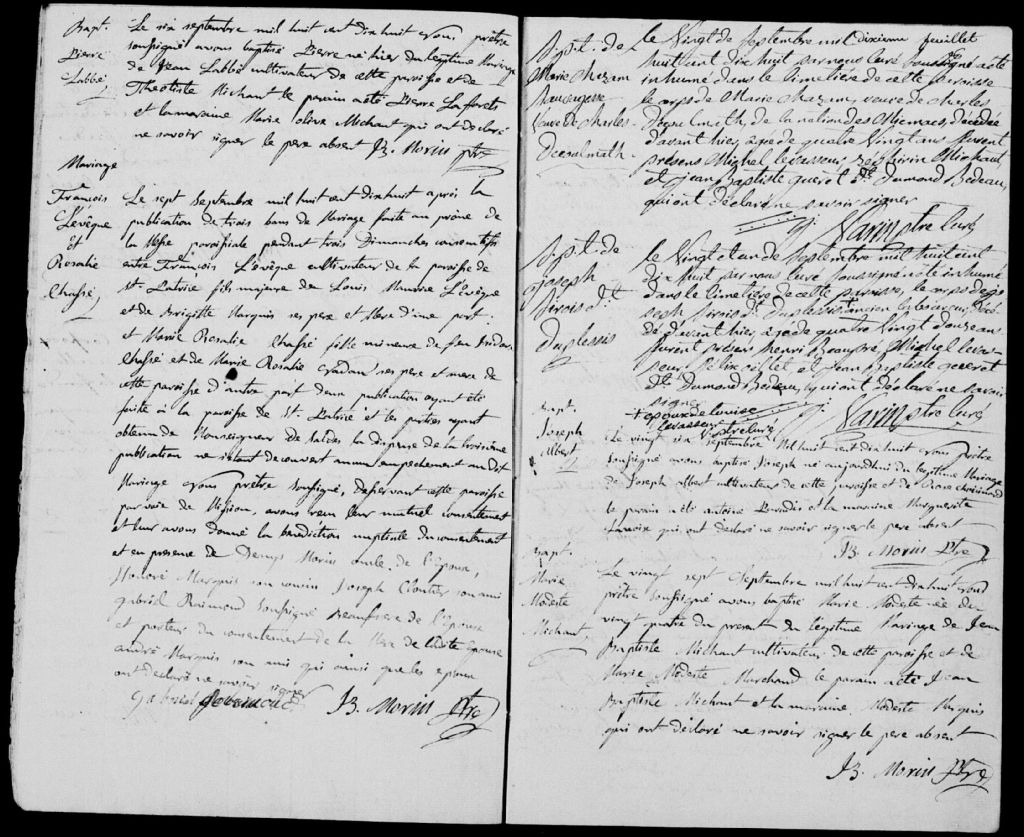 Bapt.
Pierre
Labbé
Le six septembre mil huit cent dix huit nous prêtre
soussigné avons baptisé Pierre né hier du légitime Mariage
de Jean Labbé cultivateur de cette paroisse et de
Théotiste Michaut le parain a été Pierre Laforets
et la maraine Marie olive Michaut qui ont déclaré
ne savoir signer le pere absent JB. Morin Ptre
Mariage
François
L'évêque
Et
Rosalie
Chassé
Le sept Septembre mil huit cent dix huit après la
publication de trois bans de Mariage faite au prône de
la Messe paroissiale pendant trois Dimanches consecutifs
entre François L'évêque cultivateur de la paroisse de
St. Patrice fils majeure de Louis L'évêque
et de Brigitte Marquis ses pere et Mere d'une part.
et Marie Rosalie Chassé fille mineure de
Chassé et de Marie Rosalie ses pere et mere de
cette paroisse d'autre part dont publication ayant été
faite à la paroisse de St. Patrice et les parties ayant
obtenu de Monseigneur de Saldes la dispense de la troisième
publication ne s'etant decouvert aucun empechement audit
Mariage nous prêtre soussigné, desservant cette paroisse
par voie de Mission, avons recu leur mutuel consentement
et leur avons donné la bénédiction nuptiale du consentement
et en presence de Denys Morin oncle de l'époux,
Honoré Marquis son cousin Joseph Cloutier son ami
gabriel Raimond soussigné Beaufrere de l'épouse
et porteur du consentement de la Mere de ladite épouse
andré Marquis son ami qui ainsi que les epoux
ont declaré ne savoir signer
Gabriel JB. Morin Ptre
Spt. de
Marie Chazam
Veuve de Charles
le Vingt de Septembre mil
huit cent dix huit par nous Curé soussigné a été
inhumé dans le Cimetière de cette paroisse
le corps de Marie Chazam, veuve de Charles
de la nation des décédée
d'avant hier, agée de quatre Vingt ans furent
présens Michel levasseur, Michaud,
et jean Baptiste guerèt dt. Dumond Bedeau,
qui ont declaré ne savoir signer
Varin ptre Curé
Spt. de
Joseph
Sirois dt.
Duplessis
le Vingt et un de Septembre mil huit cent
dix huit par nous Curé soussigné a été inhumé
dans le Cimetière de cette paroisse, le corps de jo-
seph Sirois dt. Duplessis ancien laboureur, décé-
dé d'avant hier, agé de quatre Vingt douze ans
furent présens henri Beaupré, Michel levas-
seur et jean Baptiste guerèt
dt. Dumond Bedeau, qui ont declaré ne savoir
signer Varin ptre Curé
+ époux de Louise
Levasseur V. ptre Curé
Bapt.
Joseph
Albert
Le vingt six Septembre Mil huit cent dix huit nous prêtre
soussigné avons baptisé Joseph né aujourdhui du légitime Mariage
de Joseph albert cultivateur de cette paroisse et de
le parain a été antoine et la maraine Marguerite
qui ont declaré ne savoir signer le pere absent
JB. Morin Ptre
Bapt.
Marie
Modeste
Michaut
Le vingt sept Septembre mil huit cent dix huit nous
prêtre soussigné avons baptisé Marie Modeste née du
vingt quatre du present du légitime Mariage de Jean
Baptiste Michaut cultivateur de cette paroisse et de
Marie Modeste Marchand le parain a été Jean
Baptiste Michaut et la maraine Modeste Marquis
qui ont déclaré ne savoir signer le pere absent
JB. Morin Ptre